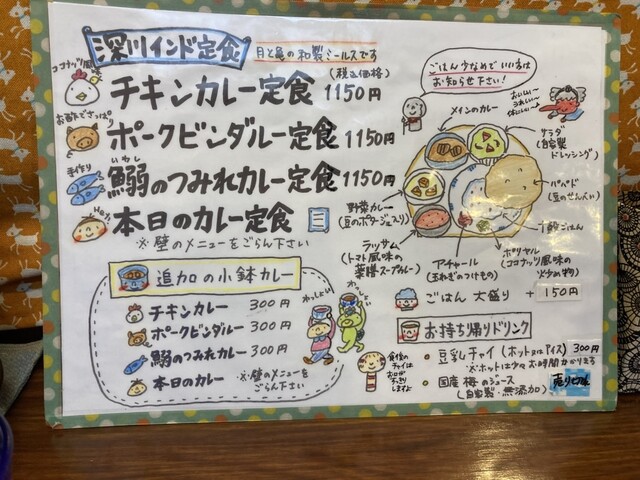 深川インド定食
月と亀の和製ミールスです
(税込価格)
ココナッツ風味
チキンカレー定食 1150円
お酢でさっぱり
ポークビンダルー定食 1150円
手作り
いわし
鰯のつみれカレー定食 1150円
本日のカレー定食
※壁のメニューをごらん下さい
ごはん少なめでいい方は
お知らせ下さい!
おいしい〜
うれしい〜
メインのカレー
サラダ
(自家製
ドレッシング)
パパド
(豆のせんべい)
ごはん
野菜カレー
(豆のポタージュ入り)
ラッサム
(トマト風味の
薬膳スープカレー)
アチャール
(玉ねぎのつけもの)
ポリヤル
(ココナッツ風味の
炒め物)
追加の小鉢カレー
チキンカレー 300円
ポークビンダルー 300円
鰯のつみれカレー 300円
本日のカレー
※壁のメニューを
ごらん下さい
わっしょい
わっしょい
ごはん 大盛り + 150円
お持ち帰りドリンク
・豆乳チャイ (ホット又はアイス) 300円
※ホットは少々お時間かかります
・国産 梅のジュース
(自家製・無添加)
売り切れ
食後の
チャイは